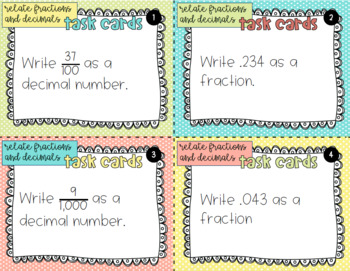 relate fractions
and decimals
task cards
1
Write 37/100 as a
decimal number.
relate fractions
and decimals
task cards
2
Write .234 as a
fraction.
relate fractions
and decimals
task cards
3
Write 9/1,000 as a
decimal number.
relate fractions
and decimals
task cards
4
Write .043 as a
fraction